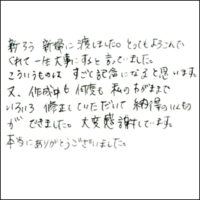 新ろう 新婦に渡しました。とってもよろこんで
くれて一生大事にすると言っていました。
こういうものは すごく記念になると思います。
又、作成中も何度も 私のわがままで
いろいろ修正していただいて 納得のいくもの
ができました。大変感謝しています。
本当にありがとうございました。